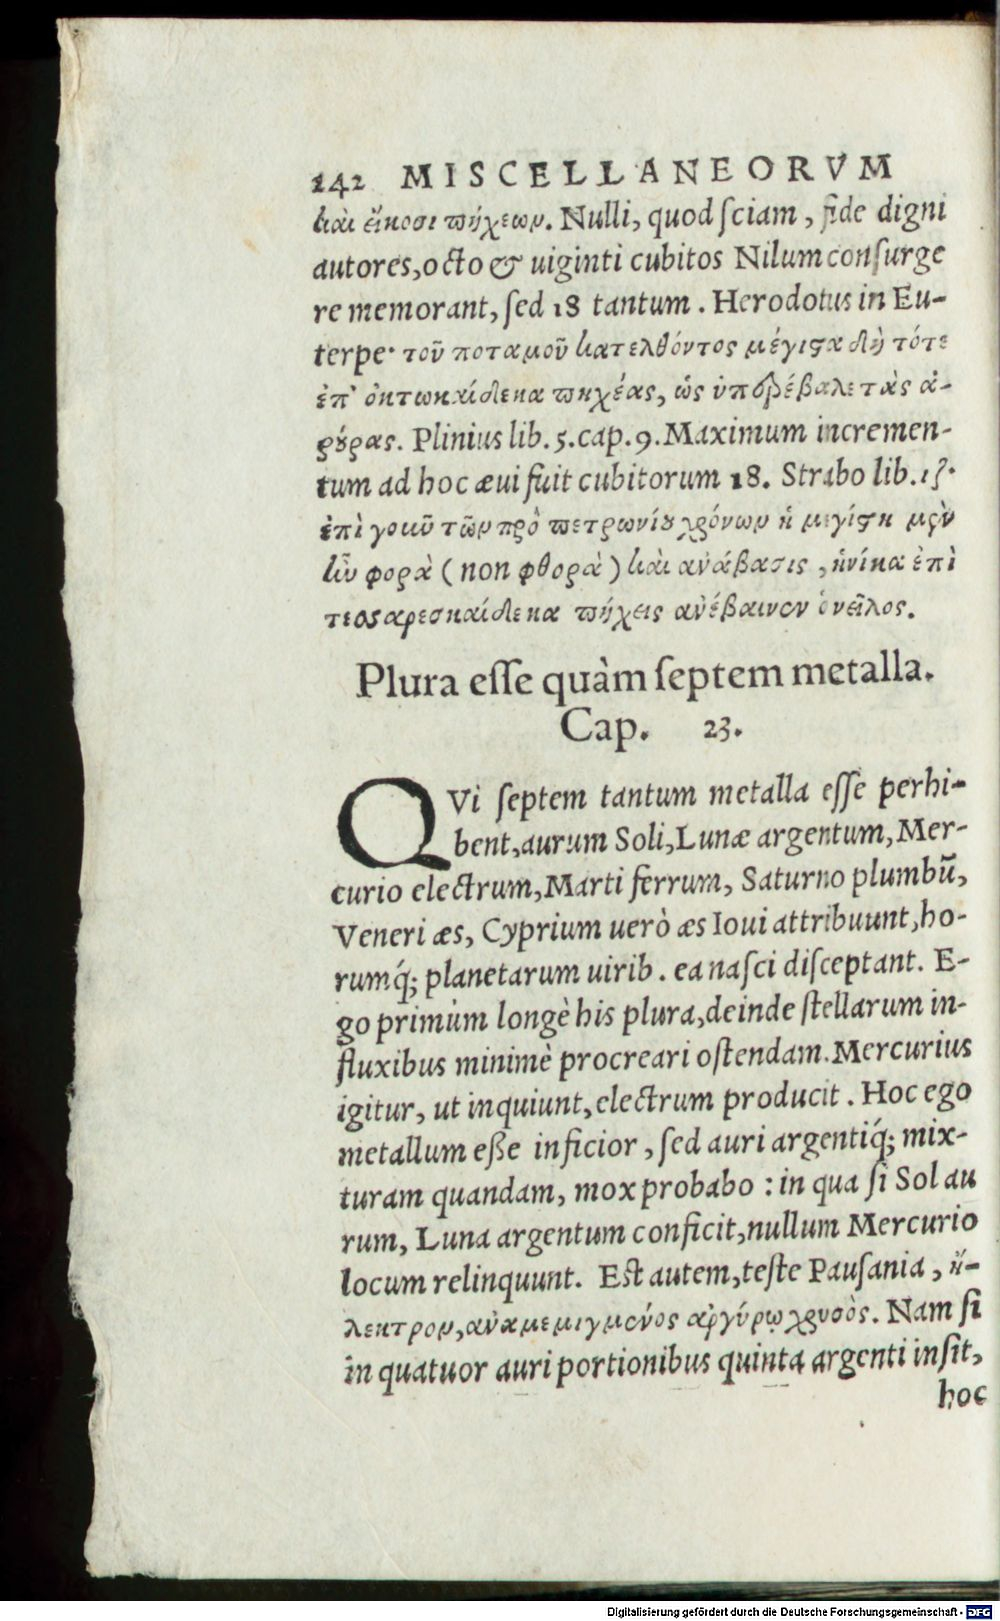 242 MISCELLANEORVM
καὶ εἴκοσι πήχεων. Nulli, quod ſciam, fide digni
autores, octo & uiginti cubitos Nilum conſurge
re memorant, ſed 18 tantum. Herodotus in Eu-
terpe· τοῦ ποταμοῦ κατελθόντος μέγιϛα δὴ τότε
ἐπ' ὀκτωκαίδεκα πηχέας, ὡς ὑπερέβαλε τὰς ἀ-
ρȣ́ρας. Plinius lib. 5. cap. 9. Maximum incremen-
tum ad hoc æui fuit cubitorum 18. Strabo lib. 17.
ἐπὶ γοιῦ τῶν πρὸ πετρωνίȣ χρόνων ἡ μεγίϛη μὲν
ἦν φορὰ (non φθορὰ) καὶ ανάβασις, ἡνίκα ἐπὶ
τεσσαρεσκαίδεκα πήχεις ανέβαινεν ὁ νεῖλος.
Plura eſſe quàm ſeptem metalla.
Cap. 23.
QVi ſeptem tantum metalla eſſe perhi-
bent, aurum Soli, Lunæ argentum, Mer-
curio electrum, Marti ferrum, Saturno plumbū,
Veneri æs, Cyprium uerò æs Ioui attribuunt, ho-
rumq́; planetarum uirib. ea naſci diſceptant. E-
go primùm longè his plura, deinde ſtellarum in-
fluxibus minimè procreari oſtendam. Mercurius
igitur, ut inquiunt, electrum producit. Hoc ego
metallum eße inficior, ſed auri argentiq́; mix-
turam quandam, mox probabo: in qua ſi Sol au
rum, Luna argentum conficit, nullum Mercurio
locum relinquunt. Eſt autem, teſte Pauſania, ἤ-
λεκτρον, αναμεμιγμένος αργύρῳ χρυσὸς. Nam ſi
in quatuor auri portionibus quinta argenti inſit,
hoc
Digitalisierung gefördert durch die Deutsche Forschungsgemeinschaft - DFG